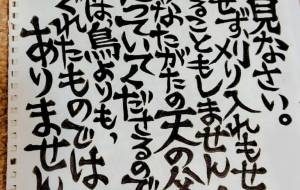 見なさい。
せず刈り入れもせ
ることもしません
なたがたの天の父
っていてくださるので
は、鳥よりも、
ぐれたものでは
ありません